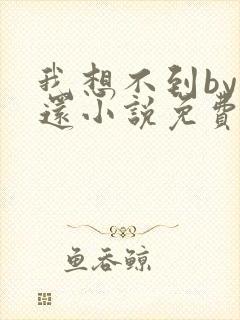 我想不到by
还小說免費
鱼吞鲸